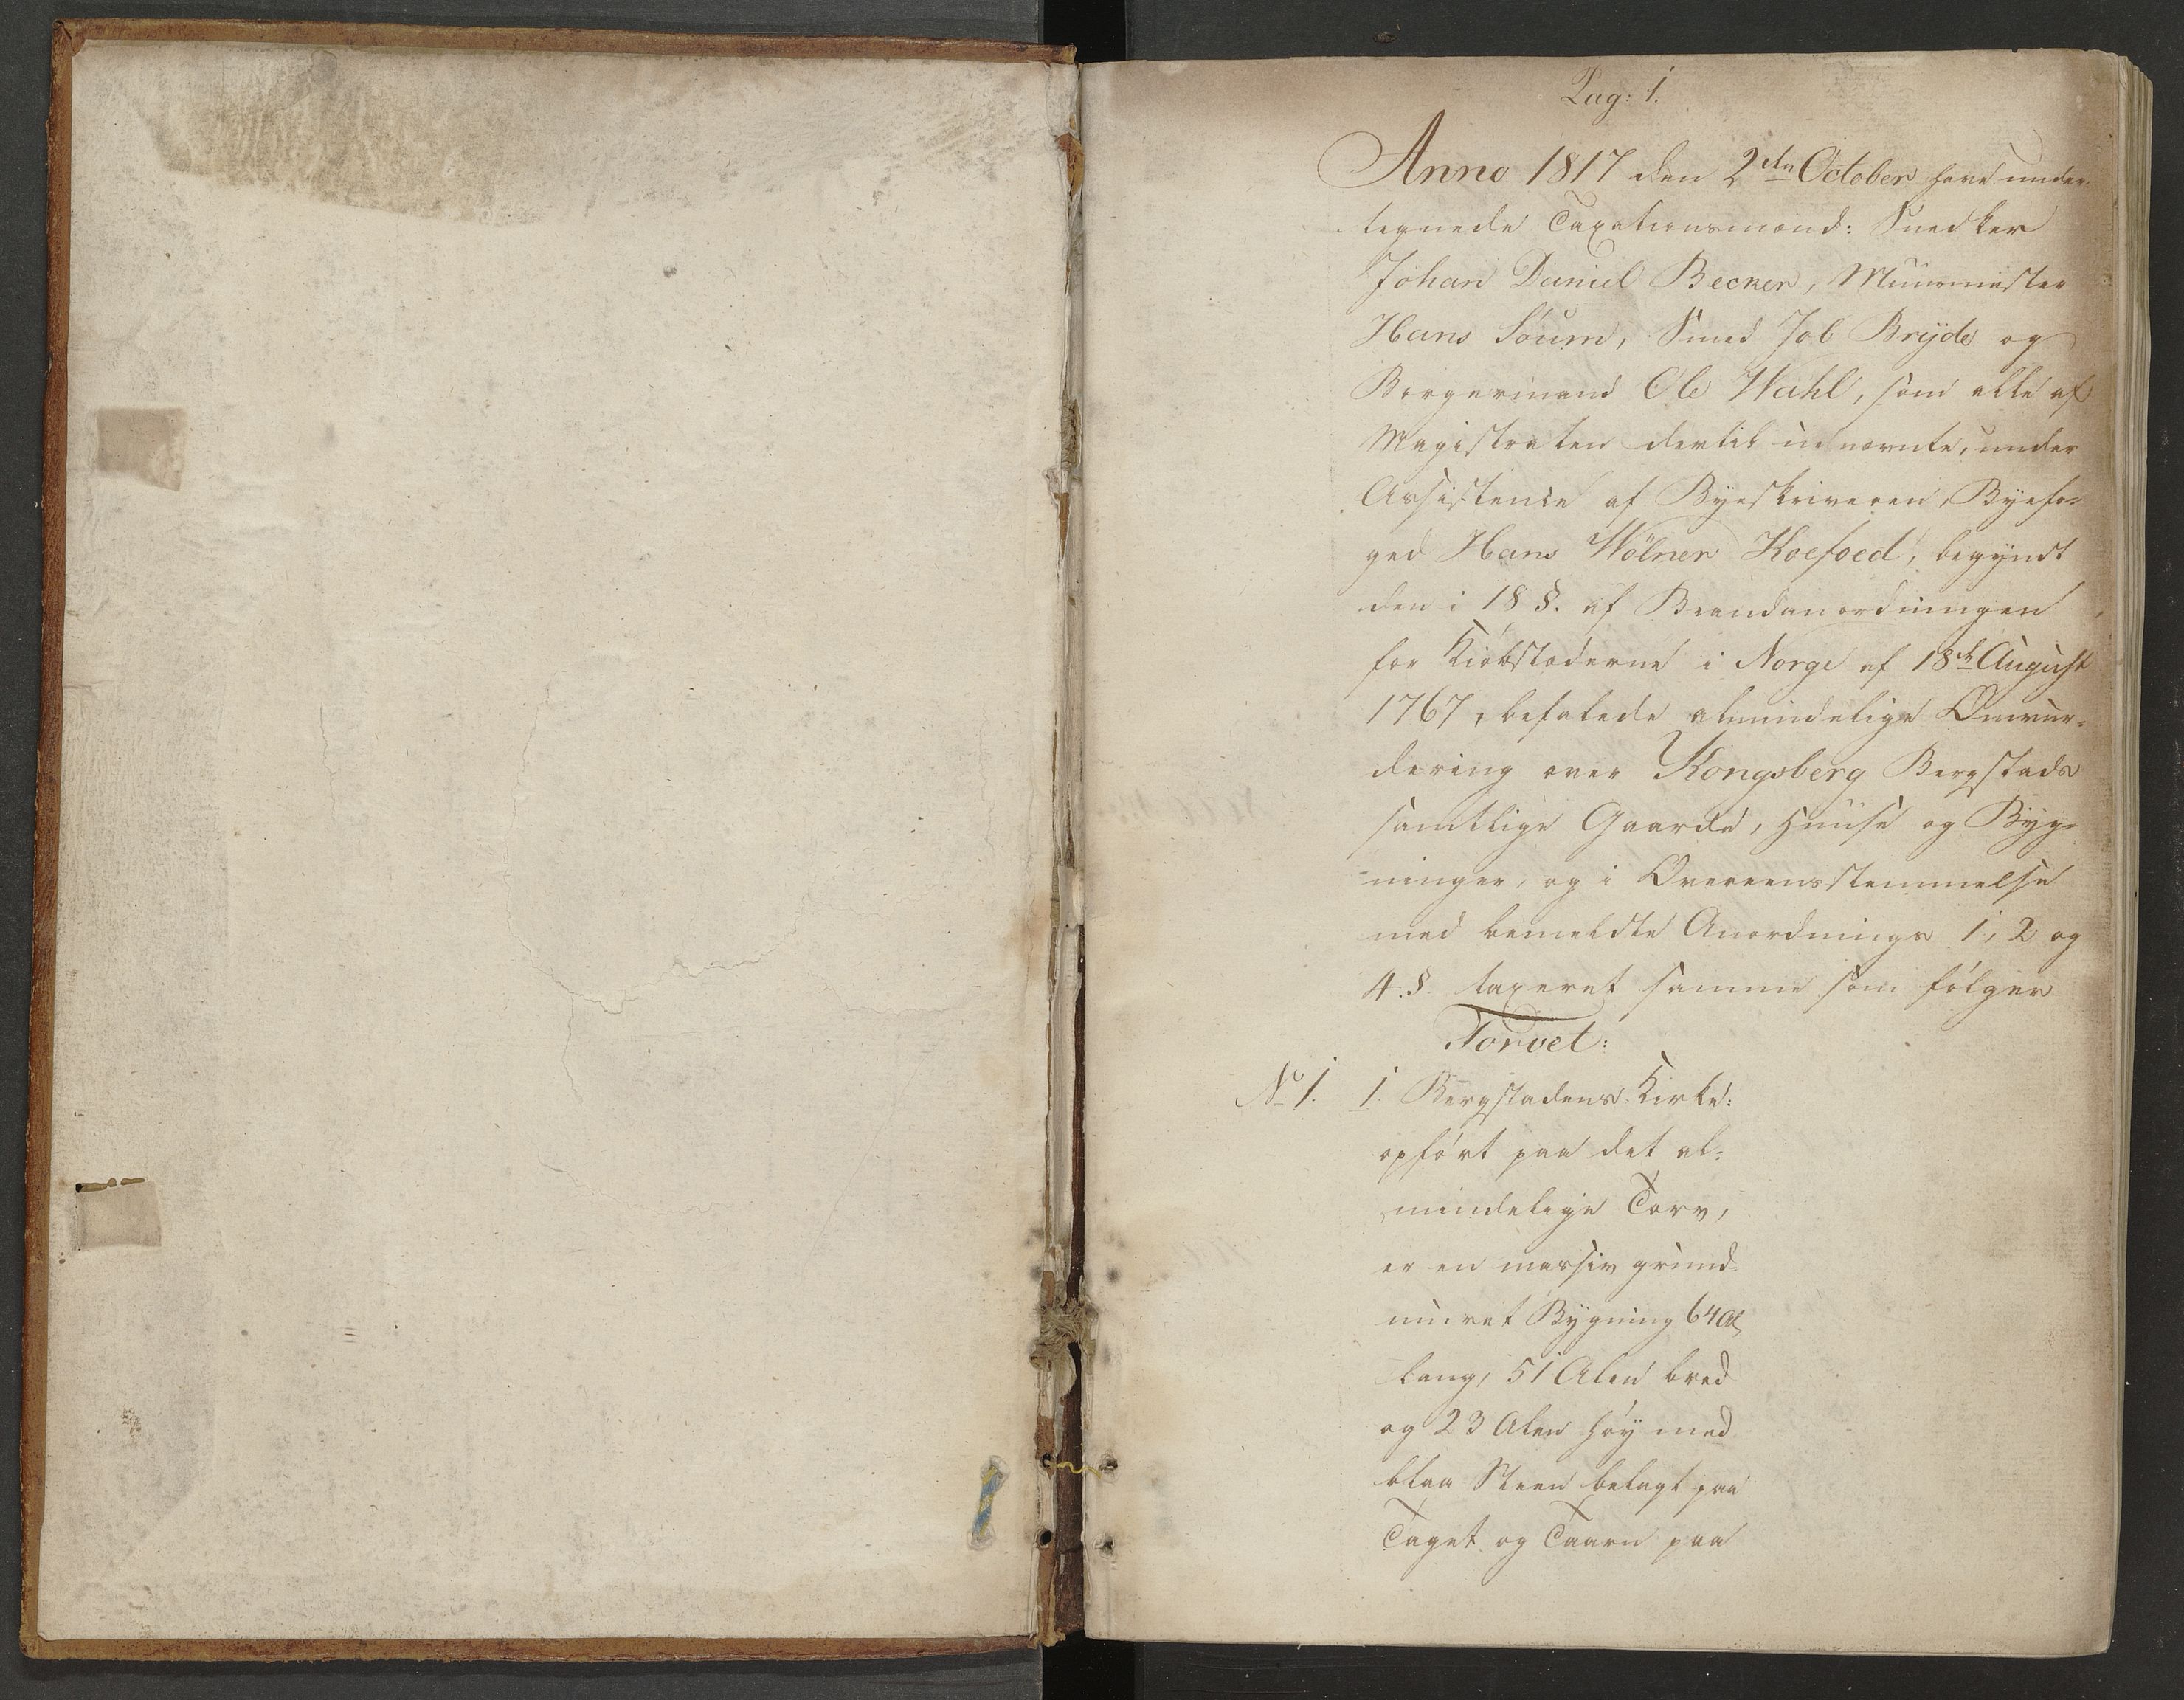 Pag: 1.
Anno 1817 den 2den October have under-
tegnede Taxationsmænd: Snedker
Johan Daniel Becker, Muurmester
Hans Soum, Smed Job Bryde og
Borgermand Ole Wahl, som alle af
Magistraten dertil ere nævnte, under
Assistence af Byeskriveren, Byefo-
ged Hans Wölner Koefoed, begyndt
den i 18 §. af Brandanordningen
for Kiöbstæderne i Norge af 18de August
1767, befalede almindelige Omvur-
dering over Kongsberg Bergstads
samtlige Gaarde, Huuse og Byg-
ninger, og i Overeensstemmelse
med bemeldte Anordnings 1, 2 og
4. § taxeret samme som fölger
Torvet:
No 1. 1. Bergstadens Kirke:
opfört paa det al-
mindelige Torv,
er en massiv grund-
muret Bygning 64 Al
lang, 51 Alen bred
og 23 Alen höy med
blaa Steen belagt paa
Taget og Taarn paa